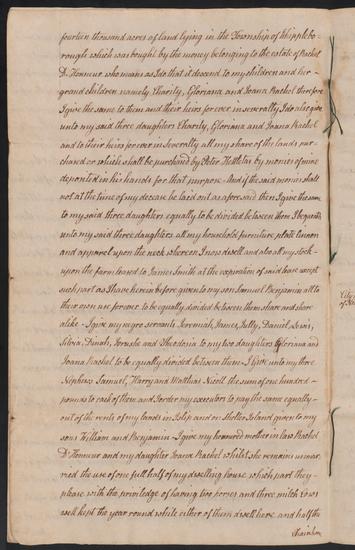 fourteen thousand acres of land lying in the Township of Whippleborough
rough which was bought by the money belonging to the estate of Rachel
D. Honneur who means as I do that it descend to my children and her
grand children namely Charity, Gloriana and Joana Rachel therefore
I give the same to them and their heirs for ever in severalty I do also give
unto my said three daughters Charity, Gloriana and Joana Rachel
and to their heirs for ever in severalty all my share of the lands pur-
chased or which shall be purchased by Peter by monies of mine
deposited in his hands for that purpose. And if the said monies shall
not at the time of my decease be laid out as aforesaid then I give the same
to my said three daughters equally to be divided between them I bequeath
unto my said three daughters all my household furniture plate linnen
and apparel upon the neck whereon I now dwell and also all my stock
upon the farm leased to James Smith at the expiration of said lease except
such part as I have herein before given to my son Samuel Benjamin all to
their own use for ever to be equally divided between them share and share
alike - I give my negro servants Jeremiah, James, Daniel, Lewis,
Silvia, Dinah, and Theodosia to my two daughters Gloriana and
Joana Rachel to be equally divided between them - I Give unto my three
Nephews Samuel, Harry and Matthias Nicoll the sum of one hundred
pounds to each of them and I order my executors to pay the same equally
out of the rents of my lands in Islip and on Shelter Island given to my
sons William and Benjamin - I give my honoured mother in law Rachel
D. Honneur and my daughter Joana Rachel whilst she remains unmar-
ried the use of one full half of my dwelling house which part they
please with the priviledge of having two horses and three milch Cows
well kept the year round while either of them dwell here and half the
City
of